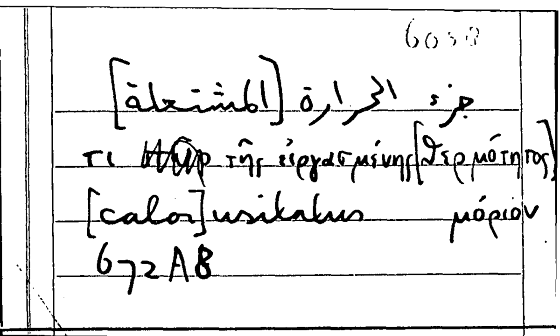 6038
جزء الحرارة [المشتعلة]
τι τῆς εἰργασμένης [θερμότητος]
[calor] usikakus μόριον
672A8